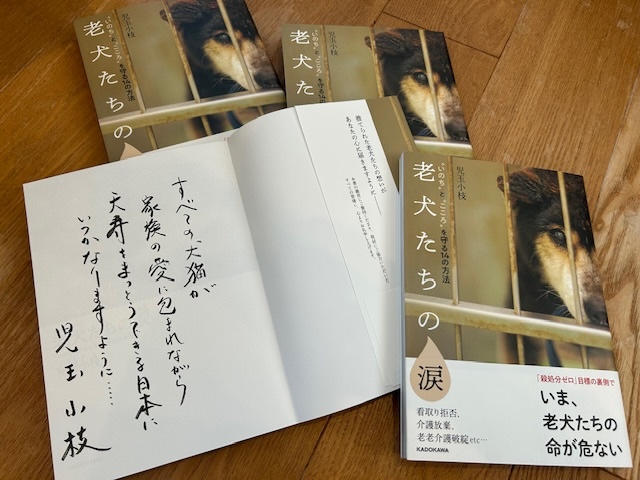 児玉小枝
"いのち"と"こころ"を守る14の方法
老犬たちの
児玉小枝
"いのち"と"こころ"を守る14の方法
老犬た
捨てられた老犬たちの想いが
あなたの心に届きますように——
すべての犬猫が
家族の愛に包まれながら
天寿をまっとうできる日本に
いつかなりますように……
児玉小枝
児玉小枝
"いのち"と"こころ"を守る14の方法
老犬たちの
涙
「殺処分ゼロ」目標の裏側で
いま、
老犬たちの
命が危ない
看取り拒否、
介護放棄、
老老介護破綻etc…
KADOKAWA